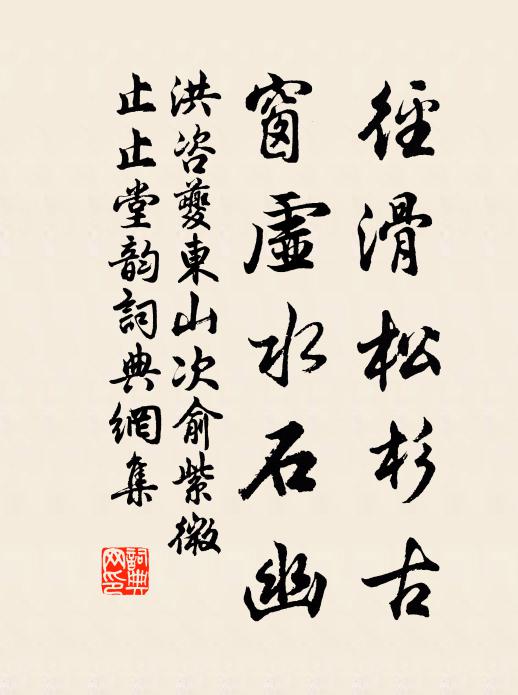 徑滑松杉古
窗虛水石幽
洪咨夔東山次俞紫微
止止堂韵詞典網集
詞典网印